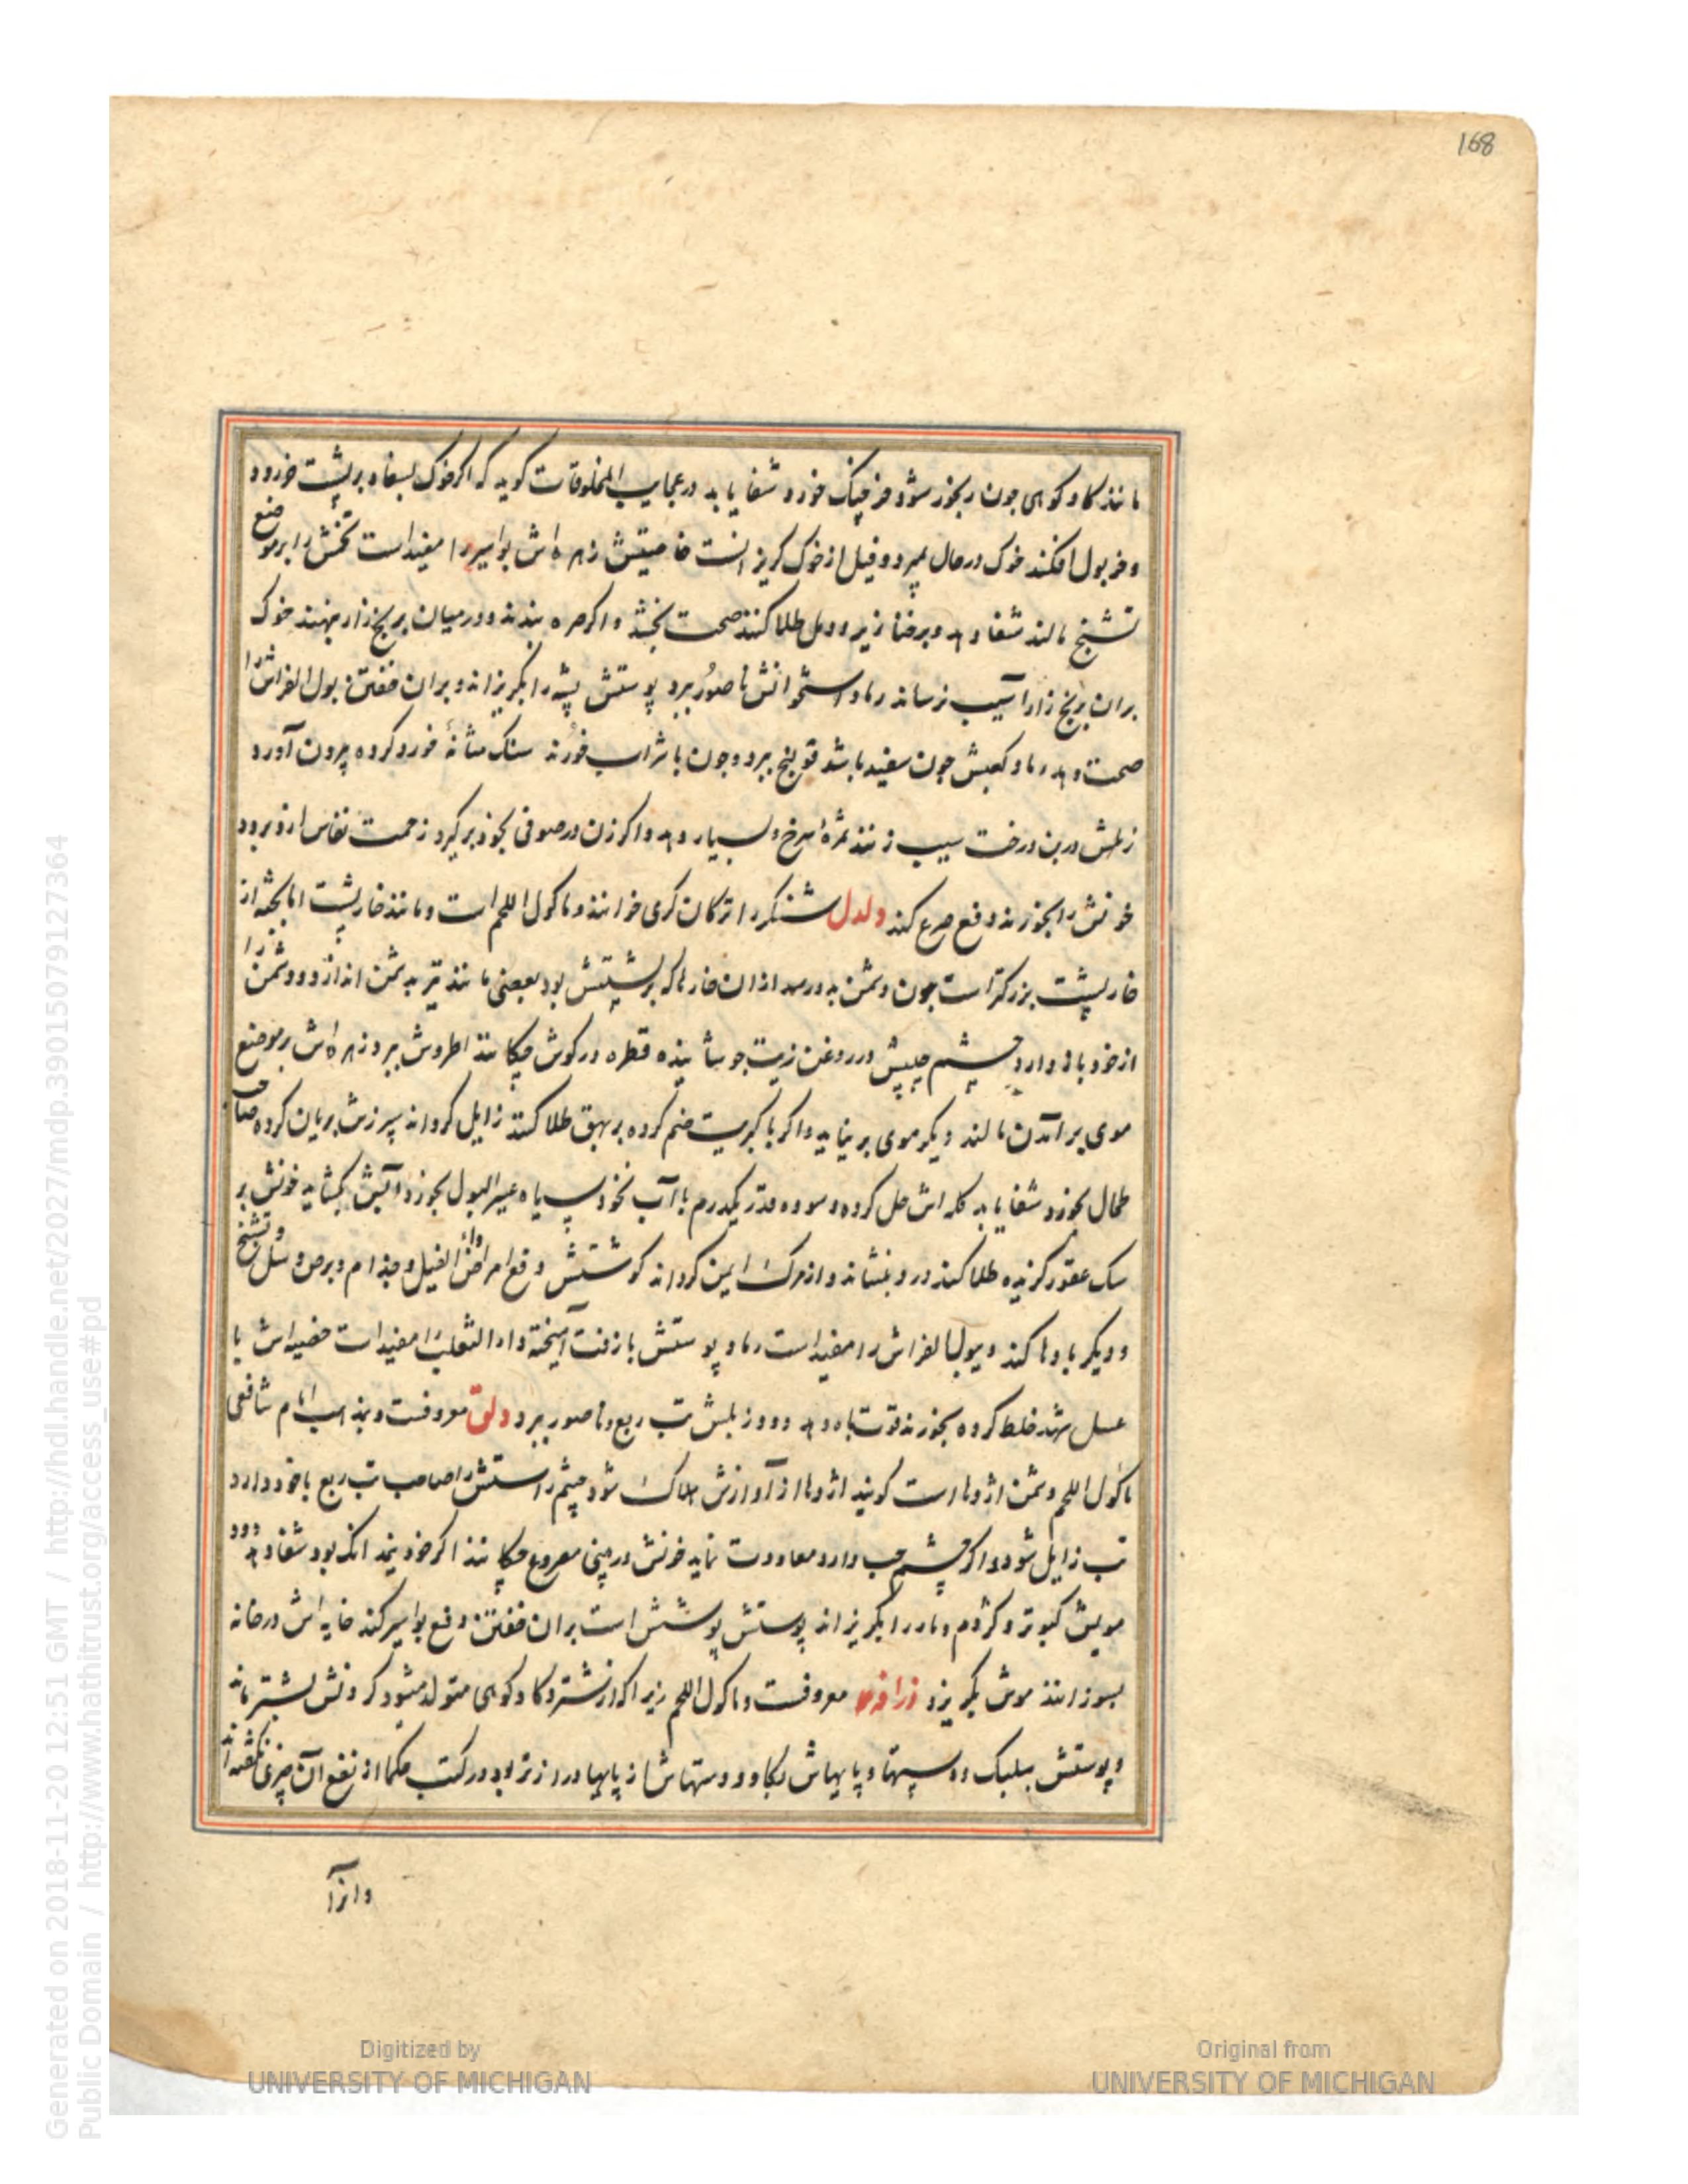 168
مانند کاو کوهی جون رنجور شود خرجنک خورد شفا یابد در عجایب المخلوقات کوید که اکر خوک بسفاد بر پشت خر رود
و خر بول افکند خوک در حال بمیرد و فیل از خوک کریزانست خاصیتش زهره اش بواسیر را مفید است تخمش را بر موضع
تشنج مالند شفا دهد و بر خنازیر و دمل طلا کنند صحت بخشد و اکر صره بندند و در میان برنج زار بنهند خوک
بران برنج زار آسیب نرساند رماد استخوانش ناصور ببرد پوستش پشه را بکریزاند و بران خفتن بول الفراش را
صحت دهد رماد کعبش جون سفید باشد قولنج ببرد و جون با شراب خورند سنک مثانه خورد کرده بیرون آورد
زبلش در بن درخت سیب نهند ثمرۀ سرخ و بسیار دهد و اکر زن در صوفی بخود برکیرد زحمت نفاس ازو برود
خونش را بخورند دفع صرع کند دلدل شنکر را ترکان کری خوانند و ماکول اللحم است و مانند خار پشت اما بجثه از
خار پشت بزرکتر است جون دشمن بدو رسد ازان خارها که بر پشتش بود بعضی مانند تیر بدشمن اندازد و دشمن را
از خود باز دارد چشم چپش در روغن زیت جوشانیده قطره در کوش چکانند اطروش ببرد زهره اش بر موضع
موی بر آمدن مالند دیکر موی بر نیاید و اکر با کبریت ضم کرده بر بهق طلا کنند زایل کرداند سپرزش بریان کرده صاحب
طحال بخورد شفا یابد کله اش حل کرده و سوده قدر یکدرم با آب نخود سیاه عسیر البول بخورد آبش بکشاید خونش بر
سک عقور کزیده طلا کنند درد بنشاند و از مرک ایمن کرداند کوشتش دفع امراض داء الفیل و جذام و برص و سل و تشنج
و دیکر بادها کند و بول الفراش را مفید است رماد پوستش با زفت آمیخته داء الثعلب را مفید است خصیه اش با
عسل شهد خلط کرده بخورند قوت باه دهد دود زبلش تب ربع و ناصور ببرد دلق معروفست و بمذهب امام شافعی
ماکول اللحم دشمن اژدها است کویند اژدها از آوازش هلاک شود چشم راستش صاحب تب ربع با خود دارد
تب زایل شود و اکر چشم چپ دارد معاودت نماید خونش در بینی مصروع چکانند اکر خود نیمدانک بود شفا دهد دود
مویش کبوتر و کژدم و مار را بکریزاند پوستش پوشش است بران خفتن دفع بواسیر کند خایه اش در خانه
بسوزانند موش بکریزد زرافه معروفست و ماکول اللحم زیرا که از شتر و کاو کوهی متولد میشود کردنش بشتر ماند
و پوستش ببلنک و سپیها و پایهاش بکاو و دستهاش از پایها درازتر بود در کتب حکما از نفع آن چیزی نکفته اند
وانرا
Generated on 2018-11-20 12:51 GMT / http://hdl.handle.net/2027/mdp.39015079127364
Public Domain / http://www.hathitrust.org/access_use#pd
Digitized by
UNIVERSITY OF MICHIGAN
Original from
UNIVERSITY OF MICHIGAN